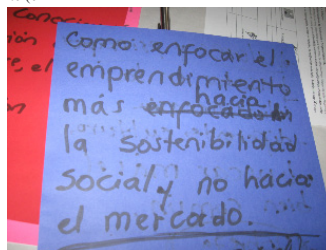 conoci
ión
e, el
on
Como enfocar el
emprendimiento
hacia
más enfocado en
la sostenibilidad
social y no hacia
el mercado.